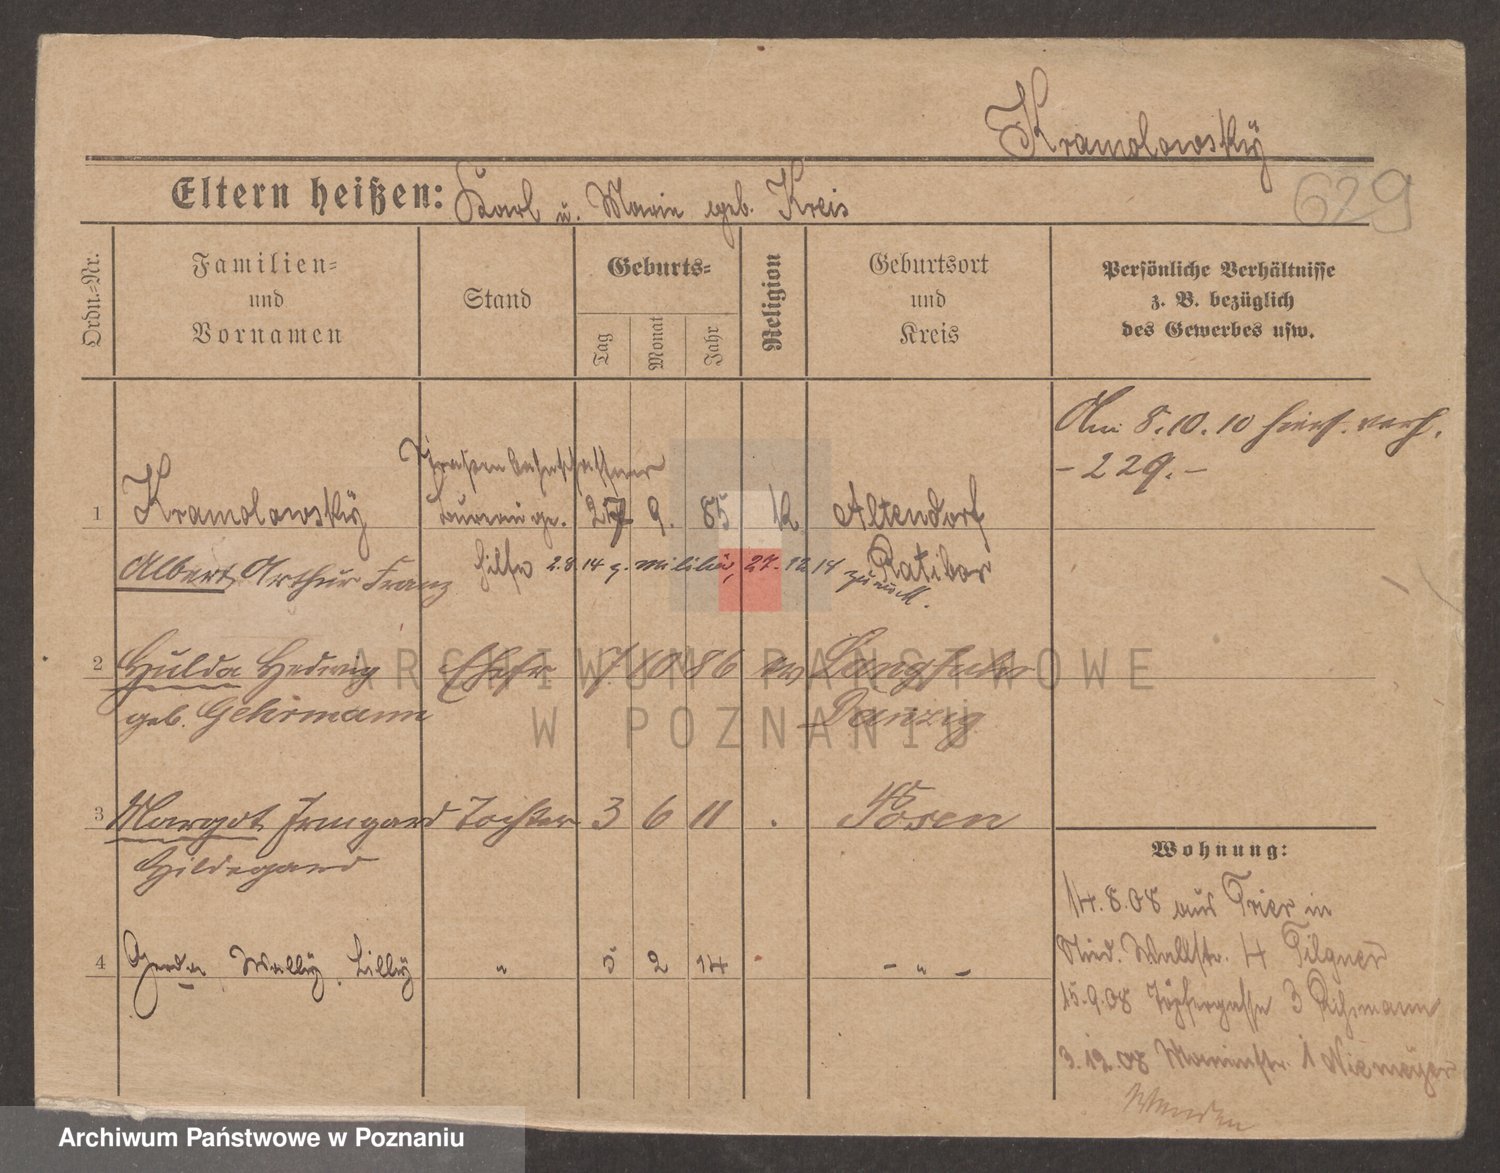 Kramolowsky
629
Eltern heißen: Karl u. Marie geb. Kreis
Ordn.-Nr.
Familien-
und
Vornamen
Stand
Geburts-
Tag
Monat
Jahr
Religion
Geburtsort
und
Kreis
Persönliche Verhältnisse
z. B. bezüglich
des Gewerbes usw.
Am 8.10.10 hier verh.
- 229. -
Straßenbahnschaffner
1 Kramolowsky Bureauge. 27 9. 85 k Altendorf
Albert Arthur Franz hilfe 2.8.14 z. Militär, 27.12.14 Ratibor
zurück.
2 Hulda Hedwig Ehefr 7 10 86 ev Langfuhr
geb. Gehrmann Danzig
3 Margot Irmgard Tochter 3 6 11 . Posen
Hildegard
4 Gerda Wally Lilly " 5 2 14 - " -
Wohnung:
14.8.08 aus Trier in
Nied. Wallstr. 4 Tilgner
15.9.08 Töpfergasse 3
3.12.08 1 Niemeyer
Wenden
ARCHIWUM PAŃSTWOWE
W POZNANIU
Archiwum Państwowe w Poznaniu